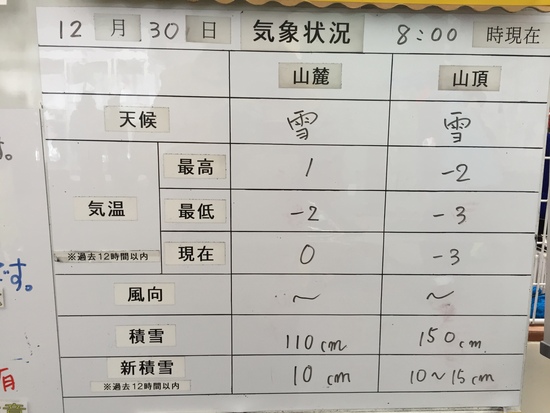 12 月 30 日 気象状況 8:00 時現在
山麓 山頂
天候 雪 雪
す。
最高 1 -2
気温 最低 -2 -3
※過去12時間以内 現在 0 -3
です。
風向 〜 〜
積雪 110cm 150cm
新積雪 10cm 10〜15cm
※過去12時間以内
有